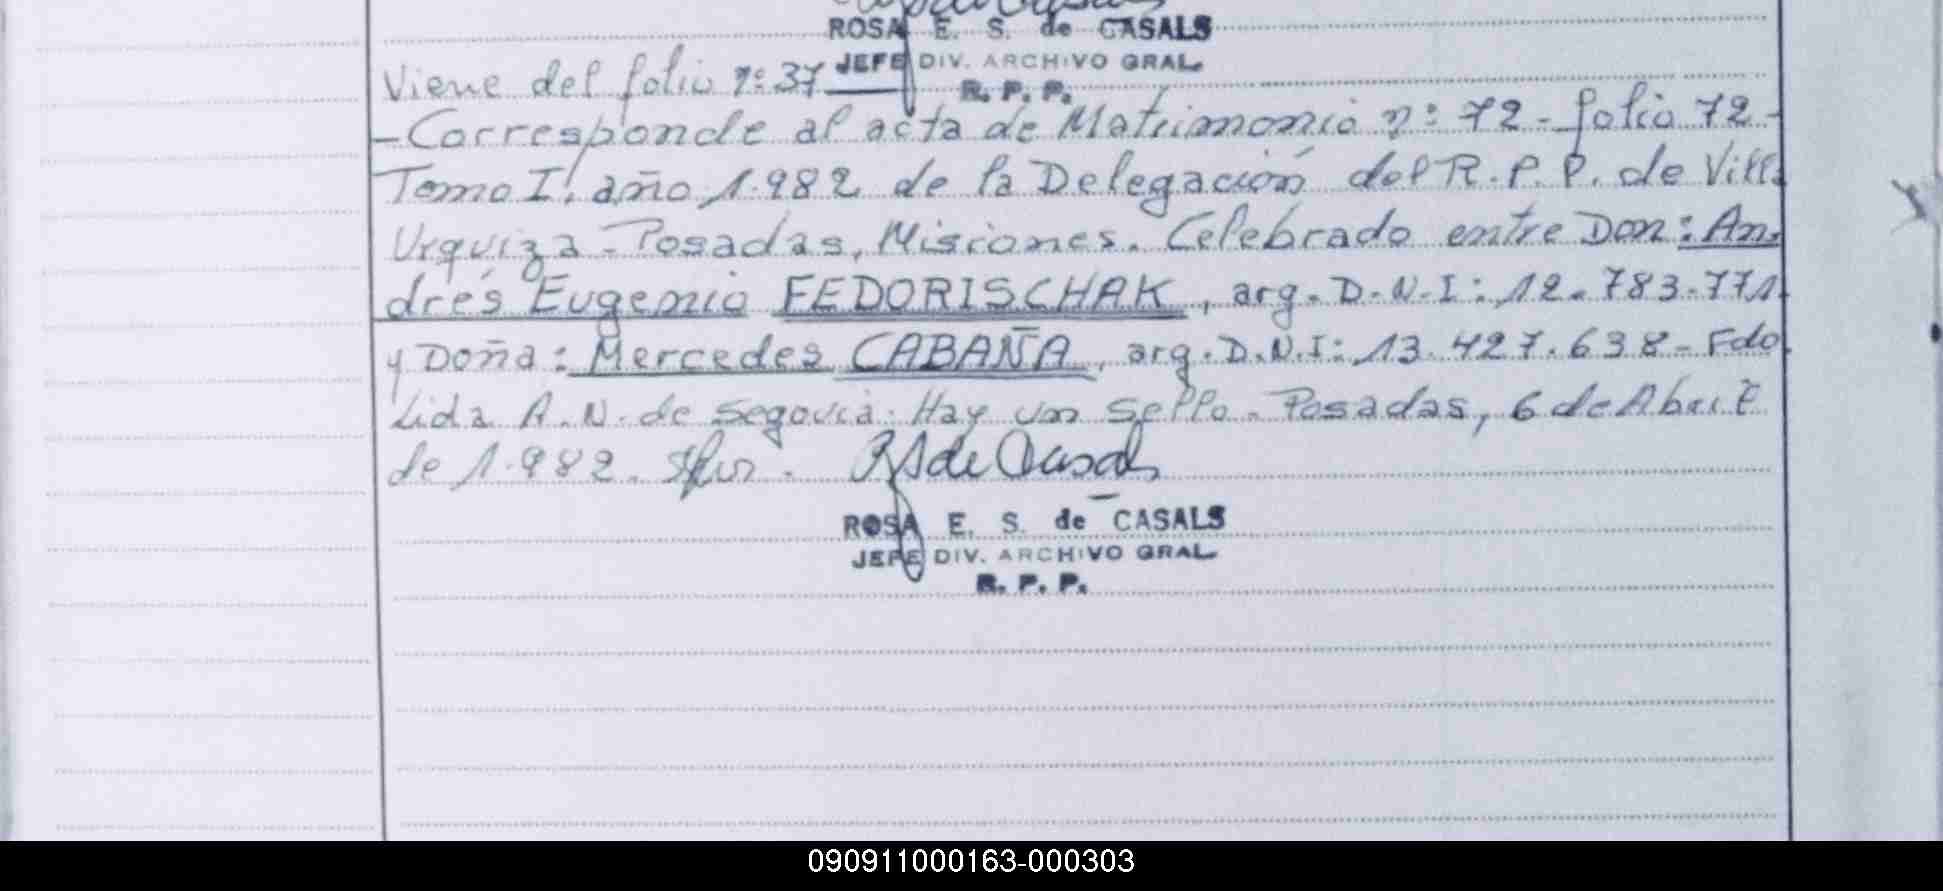 ROSA E. S. de CASALS
JEFE DIV. ARCHIVO GRAL
R. P. P.
Viene del folio nº: 37
-Corresponde al acta de Matrimonio nº: 72 - folio 72 -
Tomo I! año 1.982 de la Delegación del R.P.P. de Villa
Urquiza - Posadas, Misiones. Celebrado entre Don: An-
drés Eugenio FEDORISCHAK, arg. D.N.I: 12.783.771
y Doña: Mercedes CABAÑA, arg. D.N.I: 13.427.638 - Fdo
Lida A. N. de Segovia. Hay un sello. Posadas, 6 de Abril
de 1.982.
ROSA E. S. de CASALS
JEFE DIV. ARCHIVO GRAL
R. P. P.
090911000163-000303